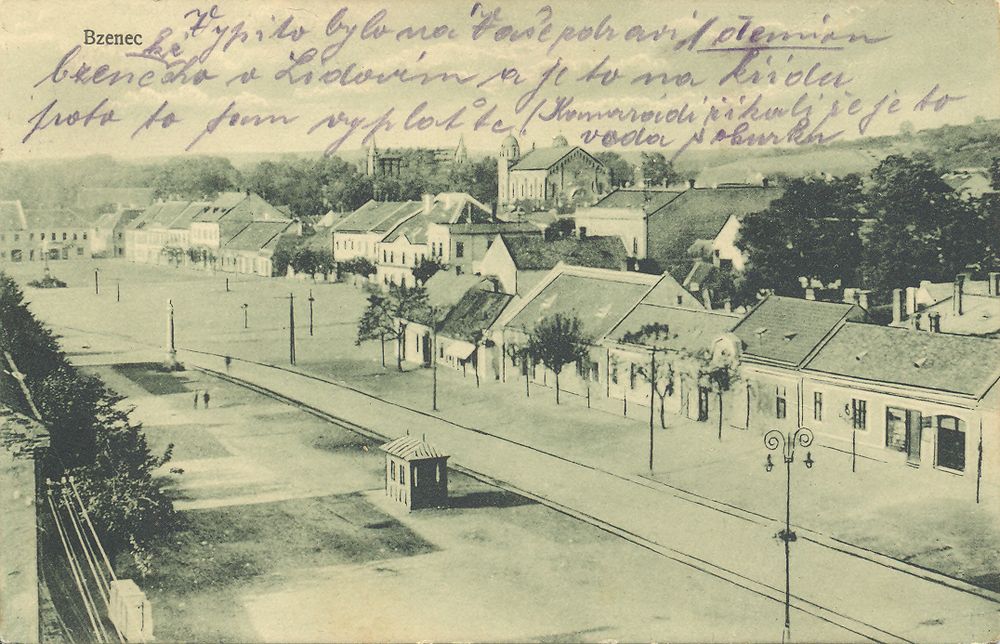 Bzenec
Vypito bylo na Vaše zdraví 1 demion
bzenecké
ho v Lidovím a je to na křídu
proto to sem vyplaťte, (Komarádi řikali že je to
voda z burku